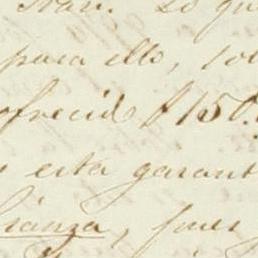 para ello, sol
ofrecido $150.
esta garant
fianza, pues